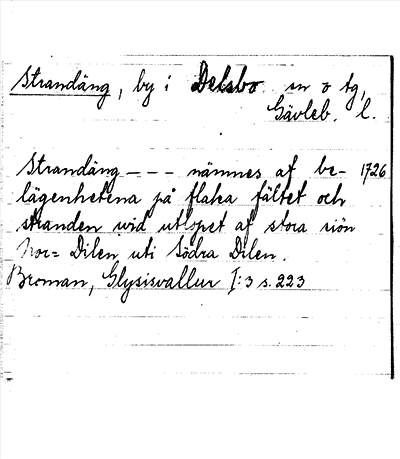 Strandäng, by i Delsbo sn o tg,
Gävleb. l.
Strandäng – – – nämnes af be- 1726
lägenhetena på flaka fältet och
stranden wid utlopet af stora siön
Nor= Dilen uti Södra Dilen.
Broman, Glysisvallur I:3 s. 223